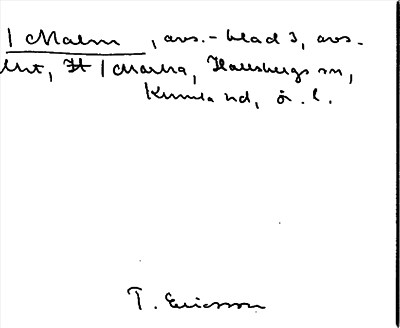 | Malm, avs.-blad 3, avs.-
vit, St | Marka, Hallsbergs sn,
Kumla hd, ö. l.
T. Ericsson